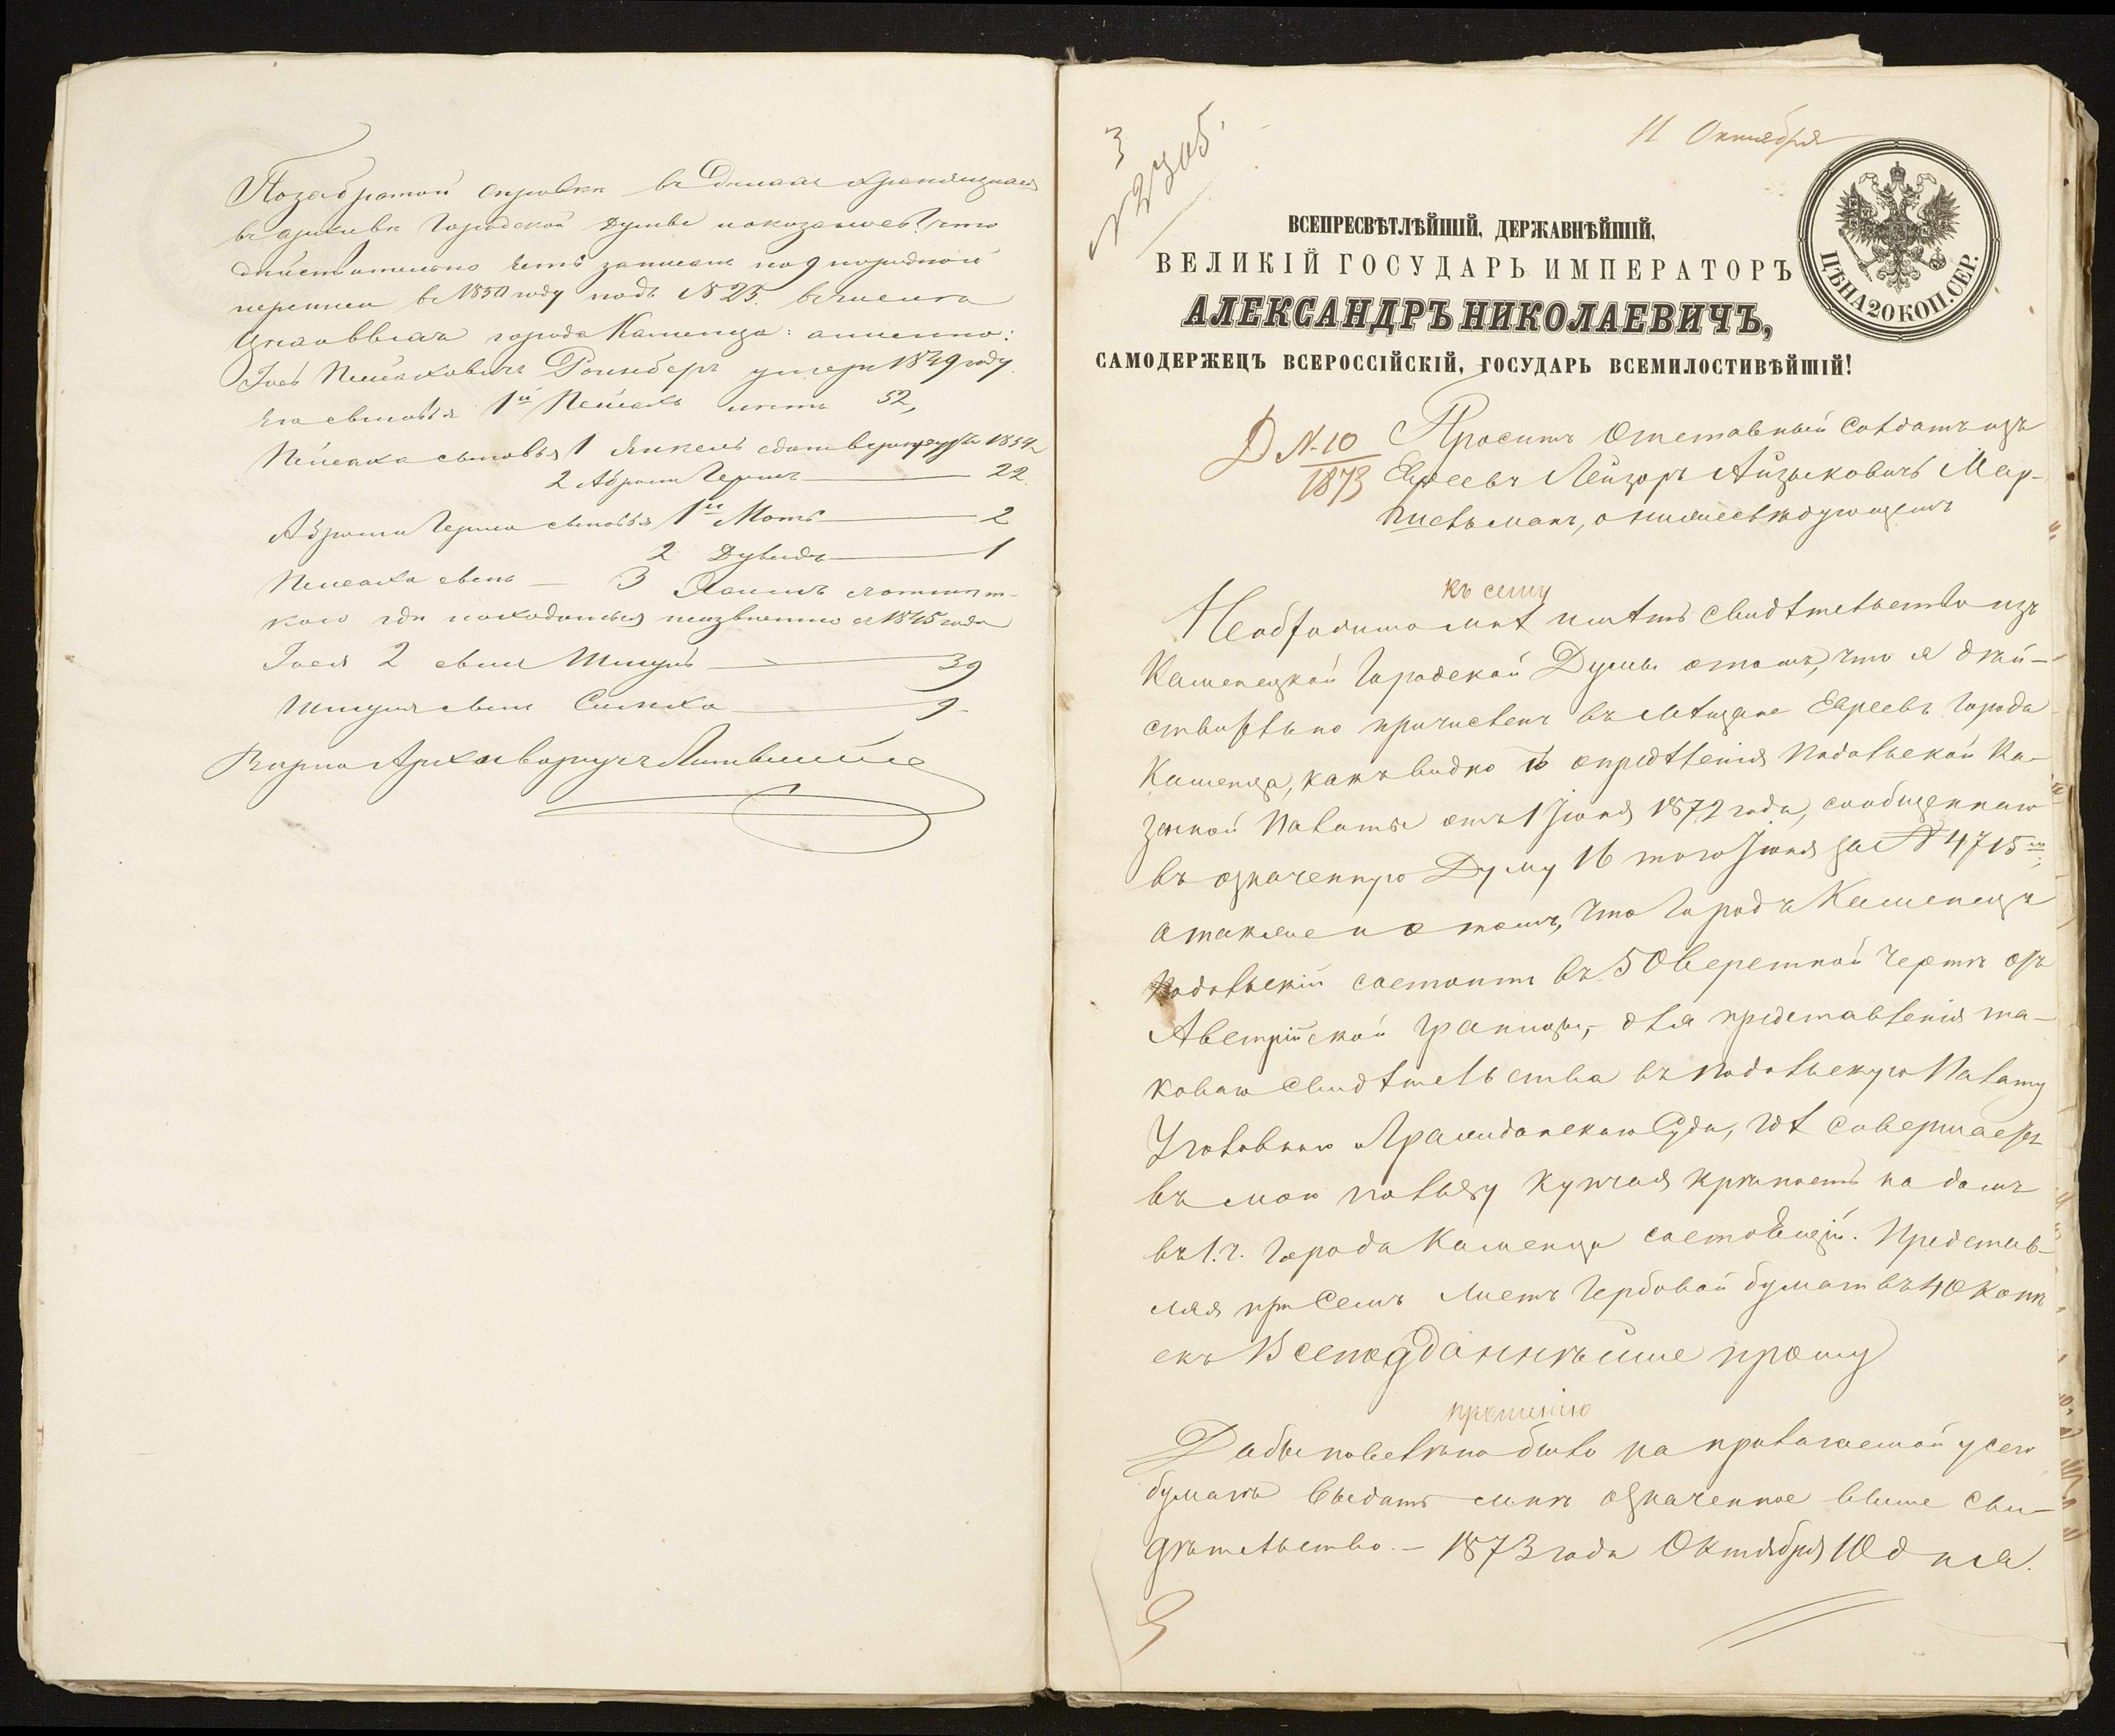 По забратой справки въ Делахъ хранящихся
въ архивѣ Городской Думы показалось, что
дѣйствительно есть записано по 9 народной
переписи въ 1850 году подъ № 23. въ числѣ
города Каменца: а именно:
Іось Пейсаховичъ Роинберъ умеръ 1849 году.
Его сыновья 1й Пейсахъ лѣтъ 52,
Пейсаха сыновья 1 Янкель сданъ въ рекруты 1854
2 Абрамъ Гершъ 22.
Абрама Герша сыновья 1й Мотъ 2
2 Дувидъ 1
Пейсаха сынъ — 3 Хаимъ
кого где находится неизвѣстно съ 1845 года
Іося 2 сынъ Шмуль 39
Шмуля сынъ Симха 9.
Вѣрно Архиваріусъ
3
11 Октября
ВСЕПРЕСВѢТЛѢЙШІЙ, ДЕРЖАВНѢЙШІЙ,
ВЕЛИКІЙ ГОСУДАРЬ ИМПЕРАТОРЪ
АЛЕКСАНДРЪ НИКОЛАЕВИЧЪ,
САМОДЕРЖЕЦЪ ВСЕРОССІЙСКІЙ, ГОСУДАРЬ ВСЕМИЛОСТИВѢЙШІЙ!
ЦѢНА 20 КОП. СЕР.
Д N. 10
1873
Проситъ Отставный Солдатъ изъ
Евреевъ Лейзоръ Айзыковичъ Мар-
о нижеслѣдующемъ
къ сему
Необходимо мнѣ имѣть свидѣтельство изъ
Каменецкой Городской Думы о томъ, что я дѣй-
ствительно причисленъ въ мѣщане Евреевъ Города
Каменца, какъ видно изъ опредѣленія Подольской Ка-
зенной Палаты отъ 1 Іюня 1872 года, сообщеннаго
въ означенную Думу 16 того Іюня за № 4715мъ;
а также и о томъ, что Городъ Каменецъ
Подольскій состоитъ въ 50 верстной чертѣ отъ
Австрійской границы, для представленія та-
коваго свидѣтельства въ Подольскую Палату
Уголовнаго и Гражданскаго Суда, гдѣ совершается
въ мою пользу купчая крѣпость на домъ
въ 1. ч. Города Каменца состоящій. Представ-
ляя при семъ листъ Гербовой бумаги въ 40 копѣ
екъ Всеподданнѣйше прошу
прошенію
Дабы повелѣно было на прилагаемой у сего
бумагѣ выдать мнѣ означенное выше сви-
дѣтельство. — 1873 года Октября 10 дня.